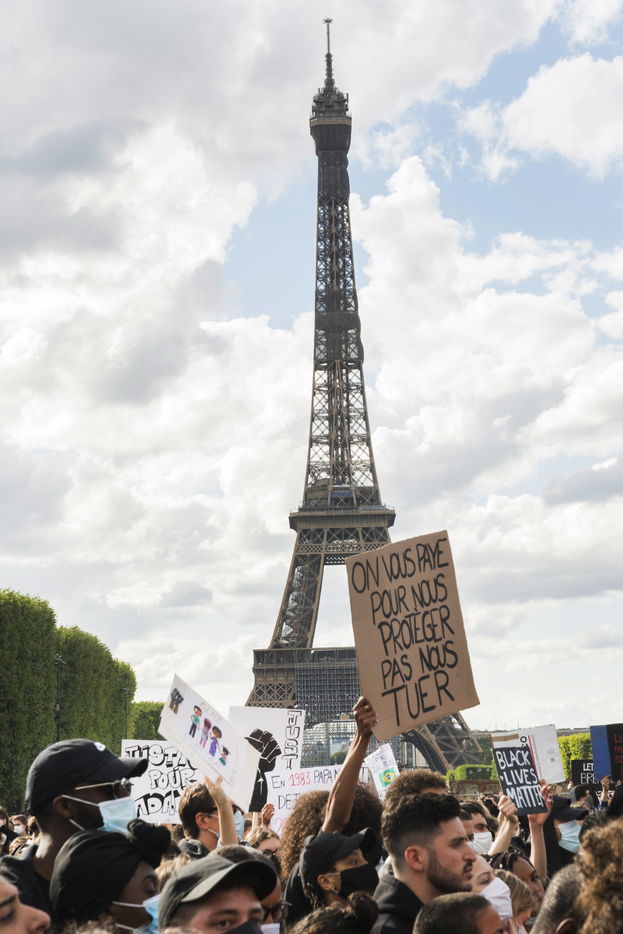 ON VOUS PAYE
POUR NOUS
PROTÉGER
PAS NOUS
TUER
JUSTICE
POUR
ADAMA
JUST
EN 1983 PAPA
DÉ
BLACK
LIVES
MATTE
LET
BRE